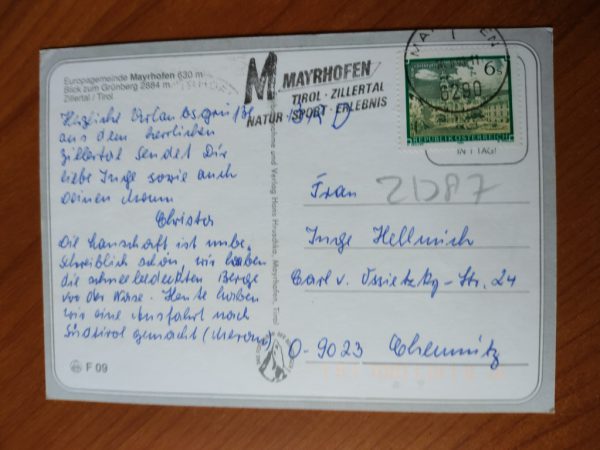 Europagemeinde Mayrhofen 630 m
Blick zum Grünberg 2884 m
Zillertal / Tirol
M MAYRHOFEN
TIROL · ZILLERTAL
NATUR · SPORT · ERLEBNIS
6290
6s
REPUBLIK ÖSTERREICH
IN 1 TAG!
Herzliche Urlaubsgrüße
aus dem herrlichen
Zillertal sendet Dir
liebe Inge sowie auch
Deinem Mann
Christa
Die Lanschaft ist unbe-
schreiblich schön, wir haben
die schneebedeckten Berge
vor der Nase. Heute haben
wir eine Ausfahrt nach
Südtirol gemacht (Meran)
F 09
und Verlag Hans Hruschka, Mayrhofen, Tirol
Frau
Inge Hellmich
Carl v. Ossietzky-Str. 24
O-9023 Chemnitz